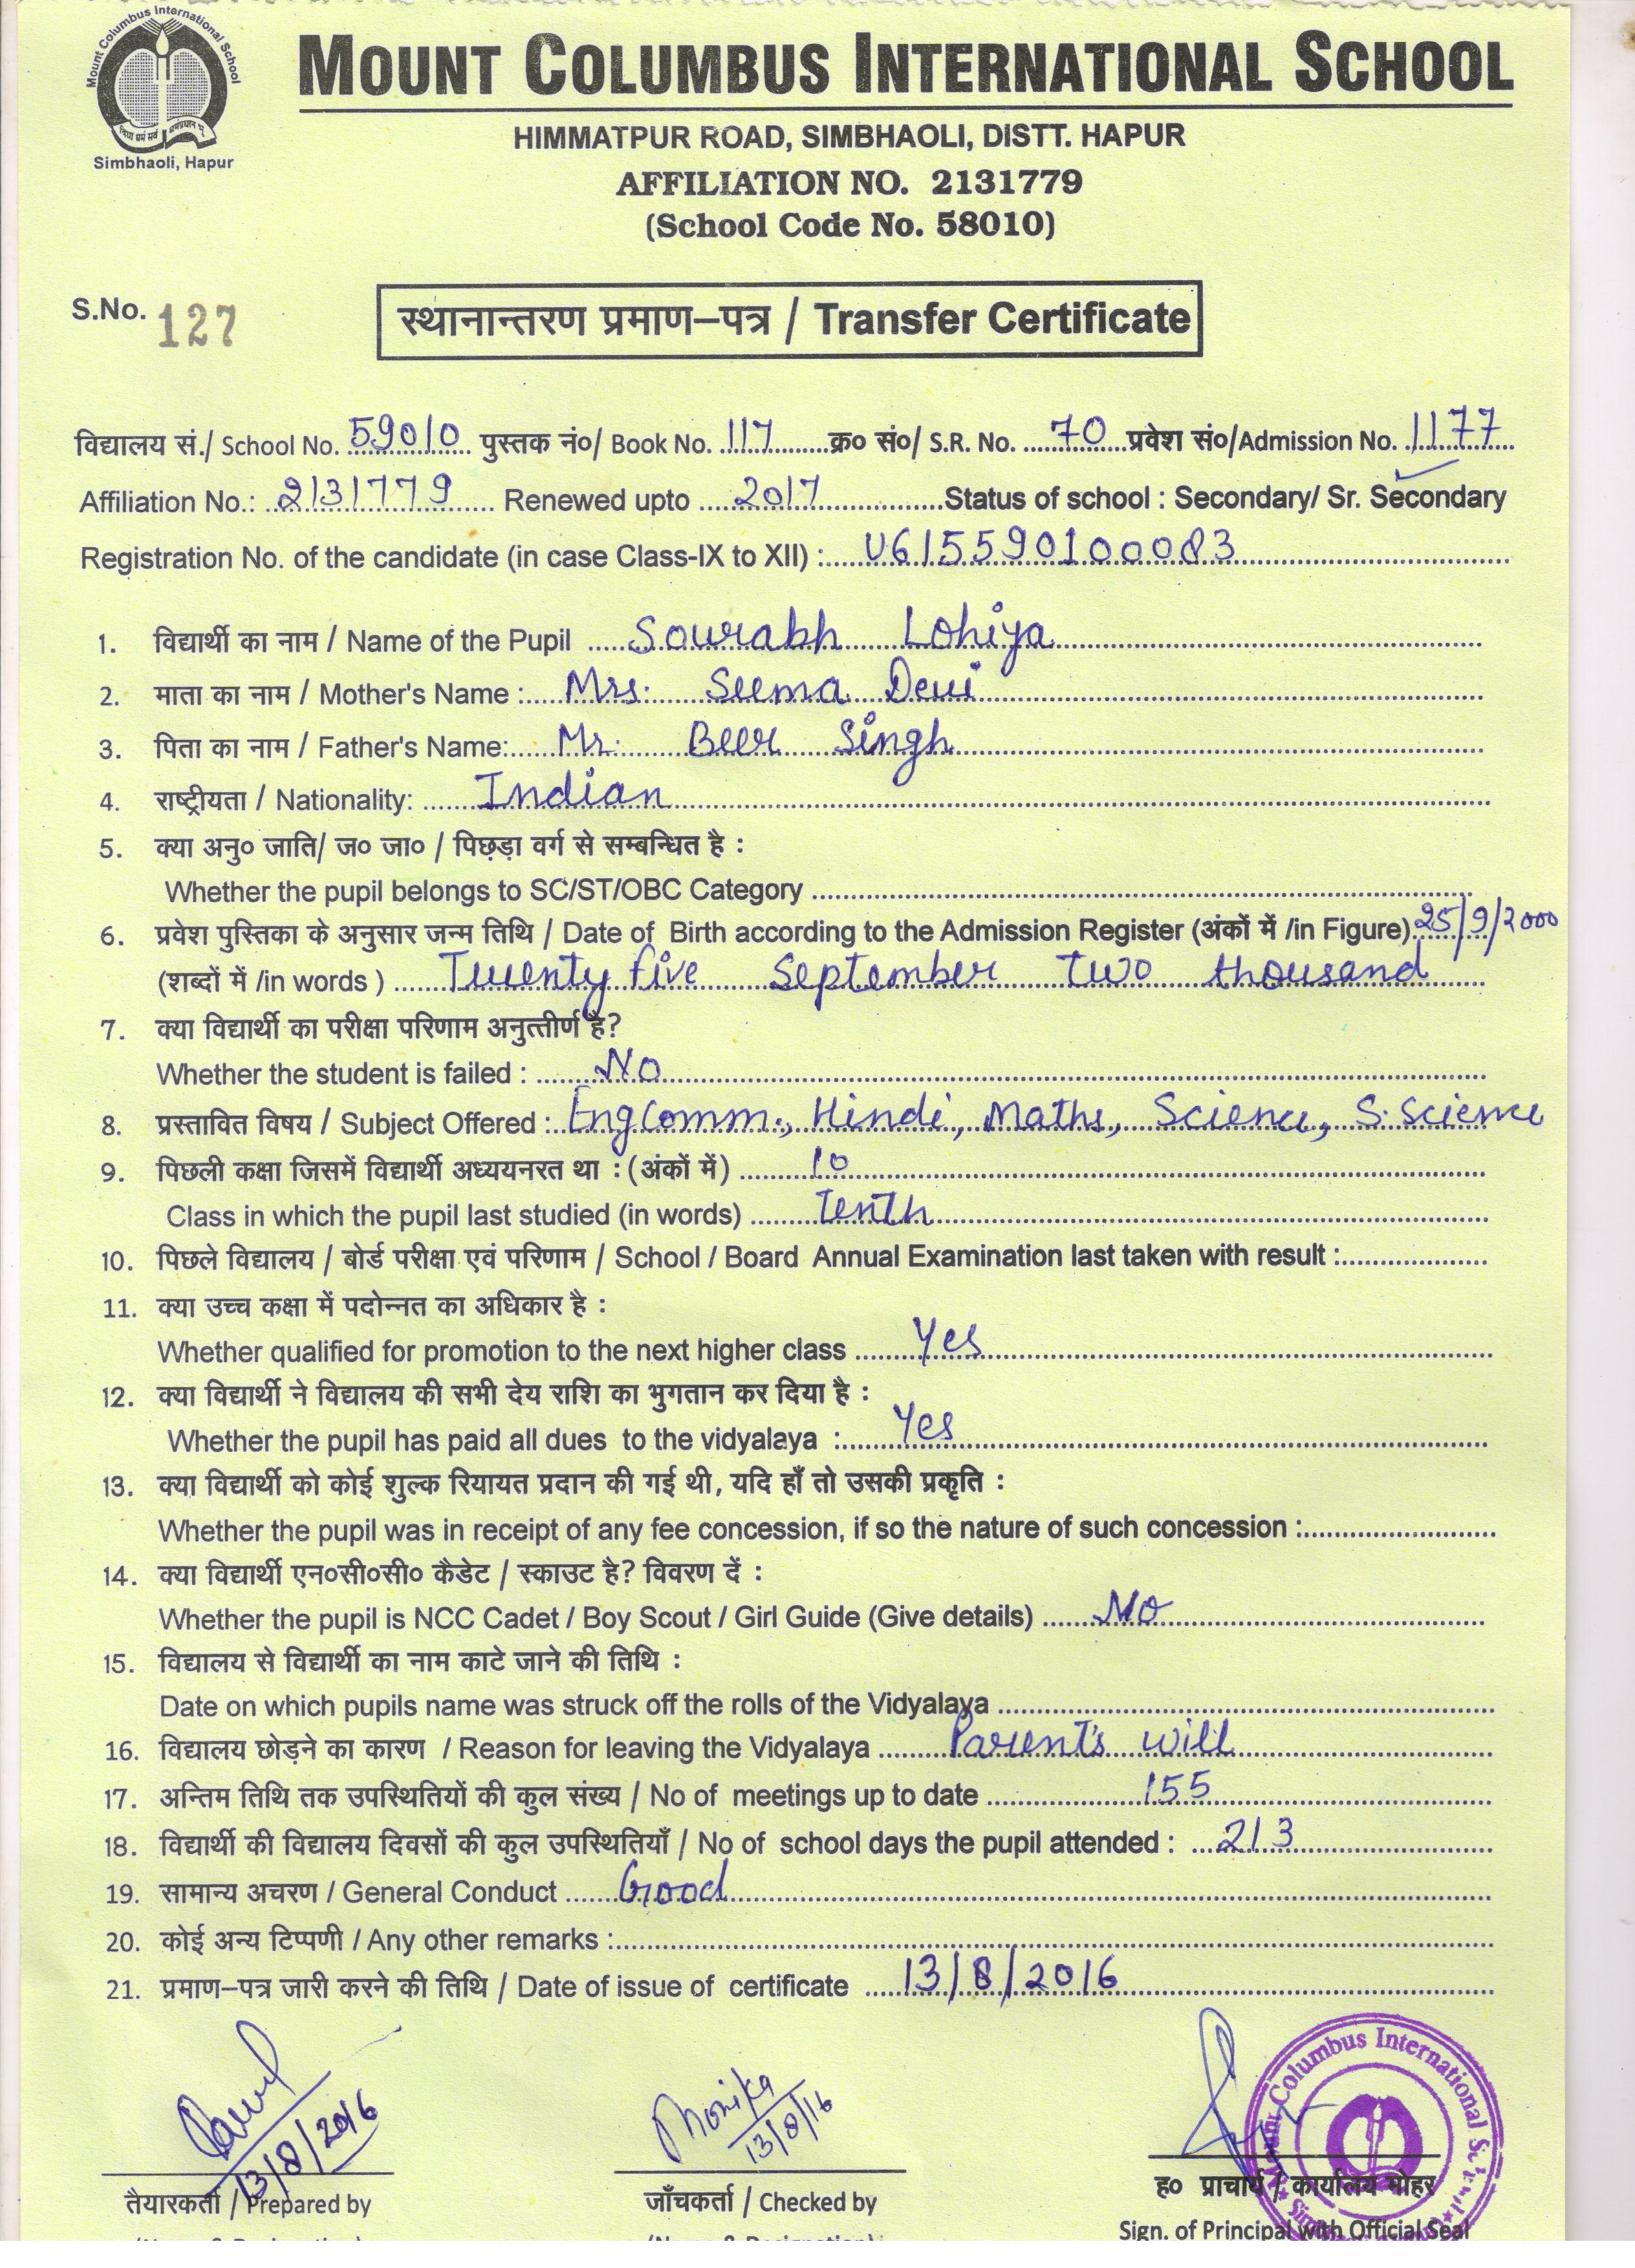 Mount Columbus International School
Simbhaoli, Hapur
MOUNT COLUMBUS INTERNATIONAL SCHOOL
HIMMATPUR ROAD, SIMBHAOLI, DISTT. HAPUR
AFFILIATION NO. 2131779
(School Code No. 58010)
S.No. 127
स्थानान्तरण प्रमाण–पत्र / Transfer Certificate
विद्यालय सं./ School No. 59010 पुस्तक नं०/ Book No. 117 क्र० सं०/ S.R. No. 70 प्रवेश सं०/Admission No. 1177
Affiliation No.: 2131779 Renewed upto 2017 Status of school : Secondary/ Sr. Secondary
Registration No. of the candidate (in case Class-IX to XII) : U615590100083
1. विद्यार्थी का नाम / Name of the Pupil Sourabh Lohiya
2. माता का नाम / Mother's Name : Mrs. Seema Devi
3. पिता का नाम / Father's Name: Mr. Beer Singh
4. राष्ट्रीयता / Nationality: Indian
5. क्या अनु० जाति/ ज० जा० / पिछड़ा वर्ग से सम्बन्धित है :
Whether the pupil belongs to SC/ST/OBC Category
6. प्रवेश पुस्तिका के अनुसार जन्म तिथि / Date of Birth according to the Admission Register (अंकों में /in Figure) 25/9/2000
(शब्दों में /in words ) Twenty five September Two thousand
7. क्या विद्यार्थी का परीक्षा परिणाम अनुत्तीर्ण है?
Whether the student is failed : No
8. प्रस्तावित विषय / Subject Offered : Eng Comm., Hindi, Maths, Science, S. Science
9. पिछली कक्षा जिसमें विद्यार्थी अध्ययनरत था : (अंकों में) 10
Class in which the pupil last studied (in words) Tenth
10. पिछले विद्यालय / बोर्ड परीक्षा एवं परिणाम / School / Board Annual Examination last taken with result :
11. क्या उच्च कक्षा में पदोन्नत का अधिकार है :
Whether qualified for promotion to the next higher class Yes
12. क्या विद्यार्थी ने विद्यालय की सभी देय राशि का भुगतान कर दिया है :
Whether the pupil has paid all dues to the vidyalaya : Yes
13. क्या विद्यार्थी को कोई शुल्क रियायत प्रदान की गई थी, यदि हाँ तो उसकी प्रकृति :
Whether the pupil was in receipt of any fee concession, if so the nature of such concession :
14. क्या विद्यार्थी एन०सी०सी० कैडेट / स्काउट है? विवरण दें :
Whether the pupil is NCC Cadet / Boy Scout / Girl Guide (Give details) No
15. विद्यालय से विद्यार्थी का नाम काटे जाने की तिथि :
Date on which pupils name was struck off the rolls of the Vidyalaya
16. विद्यालय छोड़ने का कारण / Reason for leaving the Vidyalaya Parent's will
17. अन्तिम तिथि तक उपस्थितियों की कुल संख्य / No of meetings up to date 155
18. विद्यार्थी की विद्यालय दिवसों की कुल उपस्थितियाँ / No of school days the pupil attended : 213
19. सामान्य अचरण / General Conduct Good
20. कोई अन्य टिप्पणी / Any other remarks :
21. प्रमाण–पत्र जारी करने की तिथि / Date of issue of certificate 13/8/2016
13/8/2016
Monika 13/8/16
Mount Columbus International
तैयारकर्ता / Prepared by
जाँचकर्ता / Checked by
ह० प्राचार्य / कार्यालय मोहर
Sign. of Principal with Official Seal